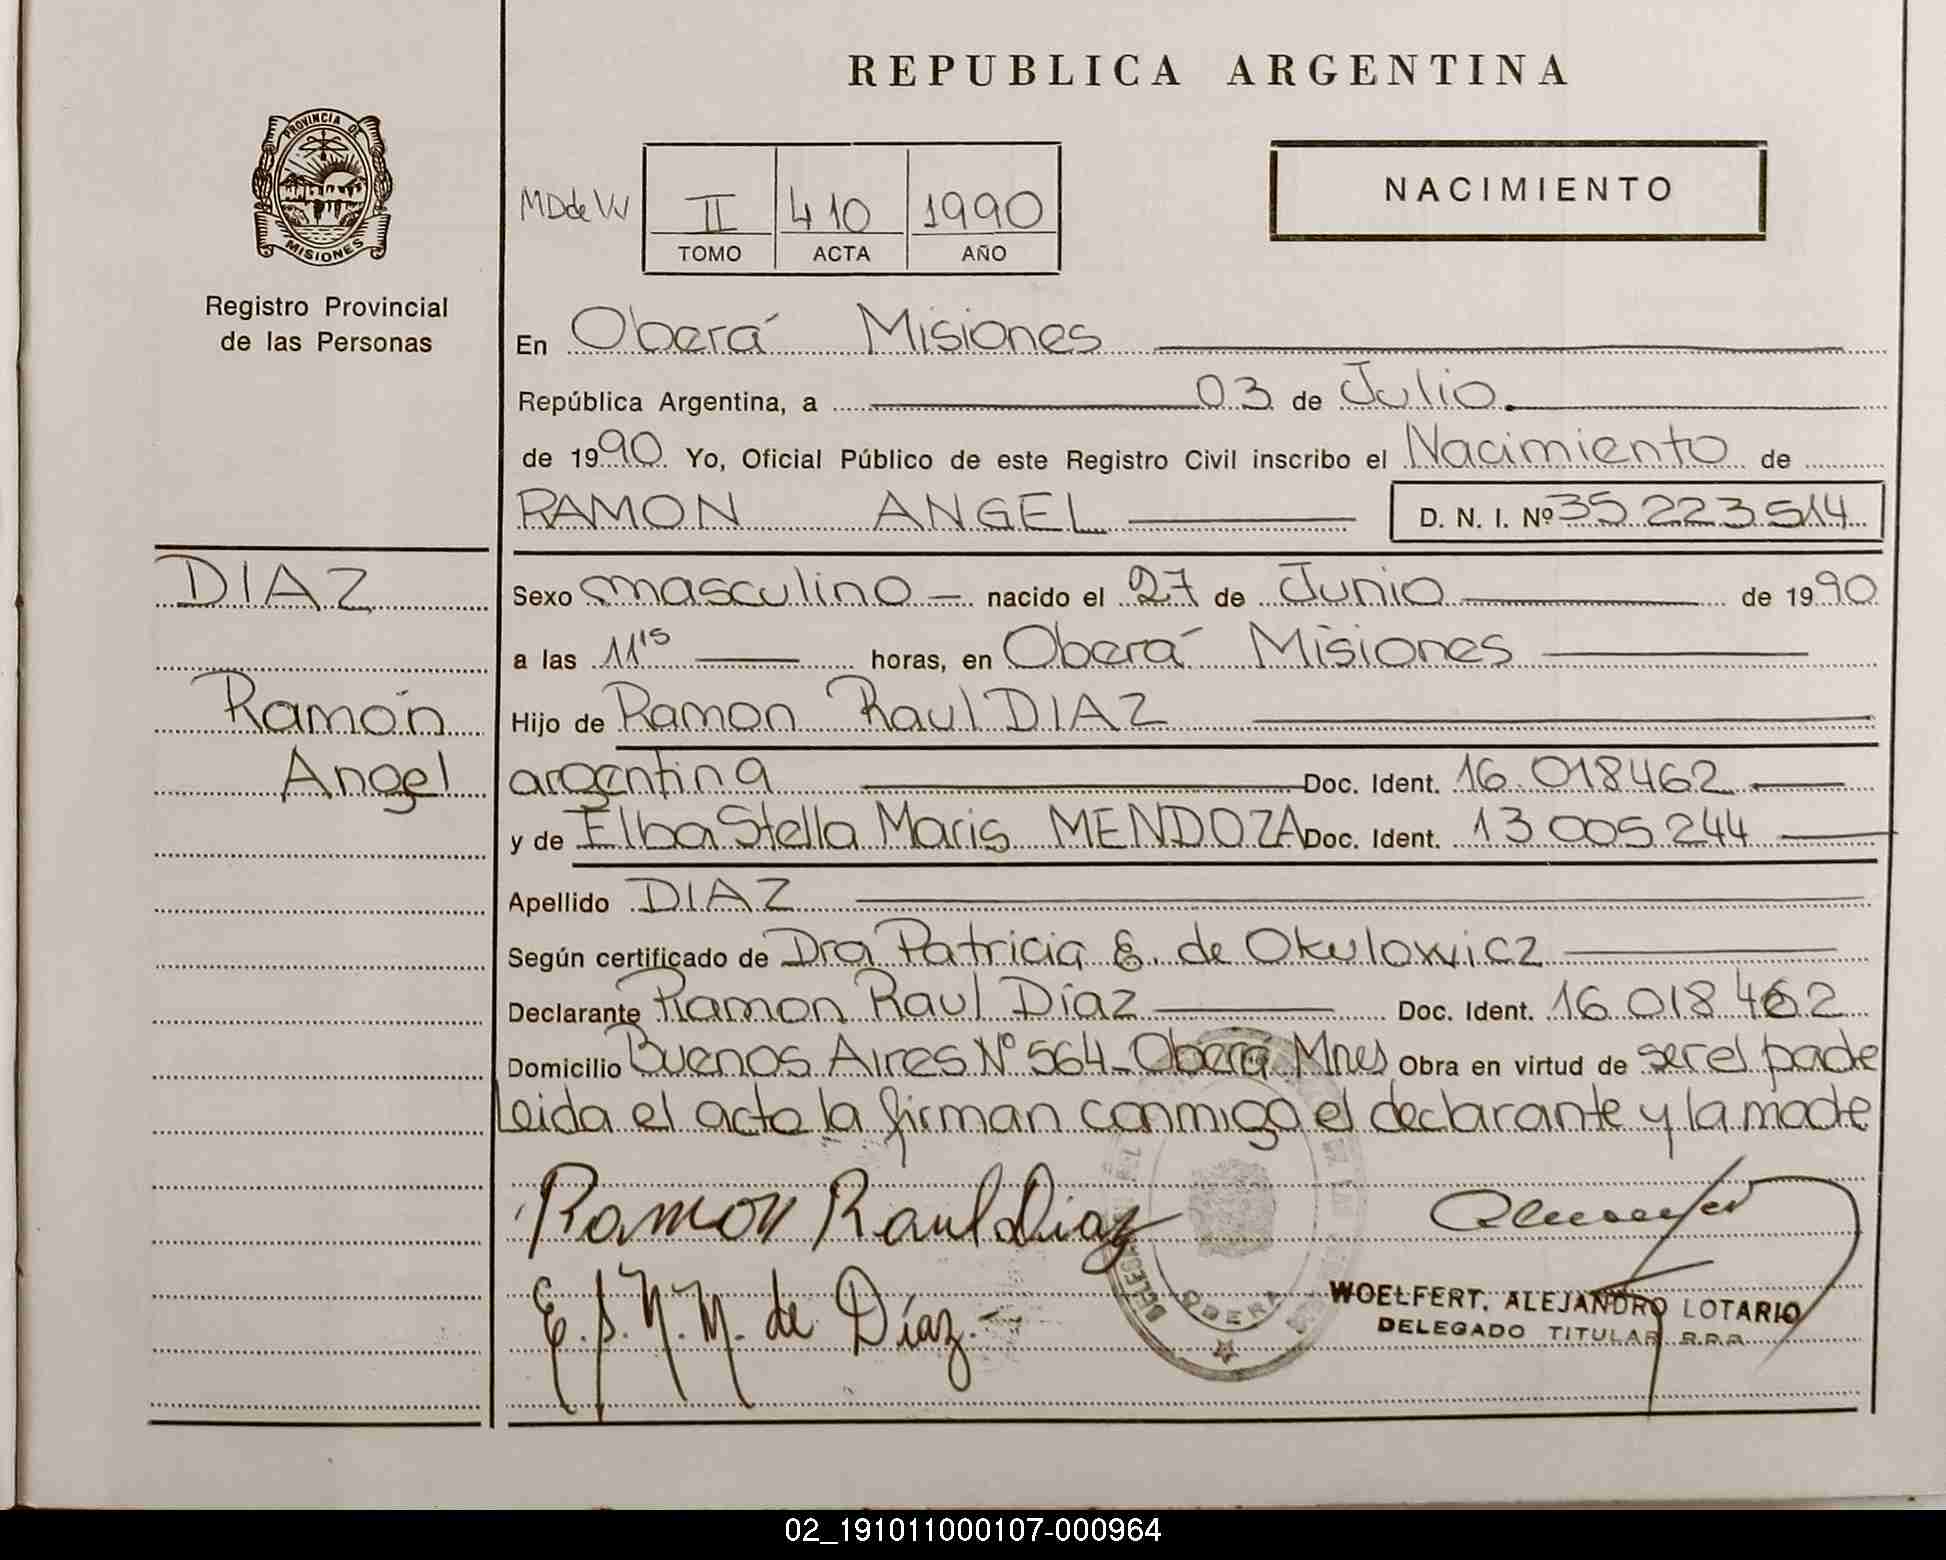 REPUBLICA ARGENTINA
PROVINCIA DE
MISIONES
Registro Provincial
de las Personas
MDdeW II 410 1990
TOMO ACTA AÑO
NACIMIENTO
En Oberá Misiones
República Argentina, a 03 de Julio
de 1990 Yo, Oficial Público de este Registro Civil inscribo el Nacimiento de
RAMON ANGEL D. N. I. Nº 35 223 514
DIAZ
Ramón
Angel
Sexo masculino nacido el 27 de Junio de 1990
a las 11 15 horas, en Oberá Misiones
Hijo de Ramon Raul DIAZ
argentina Doc. Ident. 16.018462
y de Elba Stella Maris MENDOZA Doc. Ident. 13 005.244
Apellido DIAZ
Según certificado de Dra Patricia E. de Okulowicz
Declarante Ramon Raul Díaz Doc. Ident. 16 018 462
Domicilio Buenos Aires Nº 564 - Oberá Mnes Obra en virtud de ser el padre
Leida el acta la firman conmigo el declarante y la madre
Ramon Raul Diaz
E.S.M.M. de Díaz.
OBERA
WOELFERT. ALEJANDRO LOTARIO
DELEGADO TITULAR R.P.P.
02_191011000107-000964